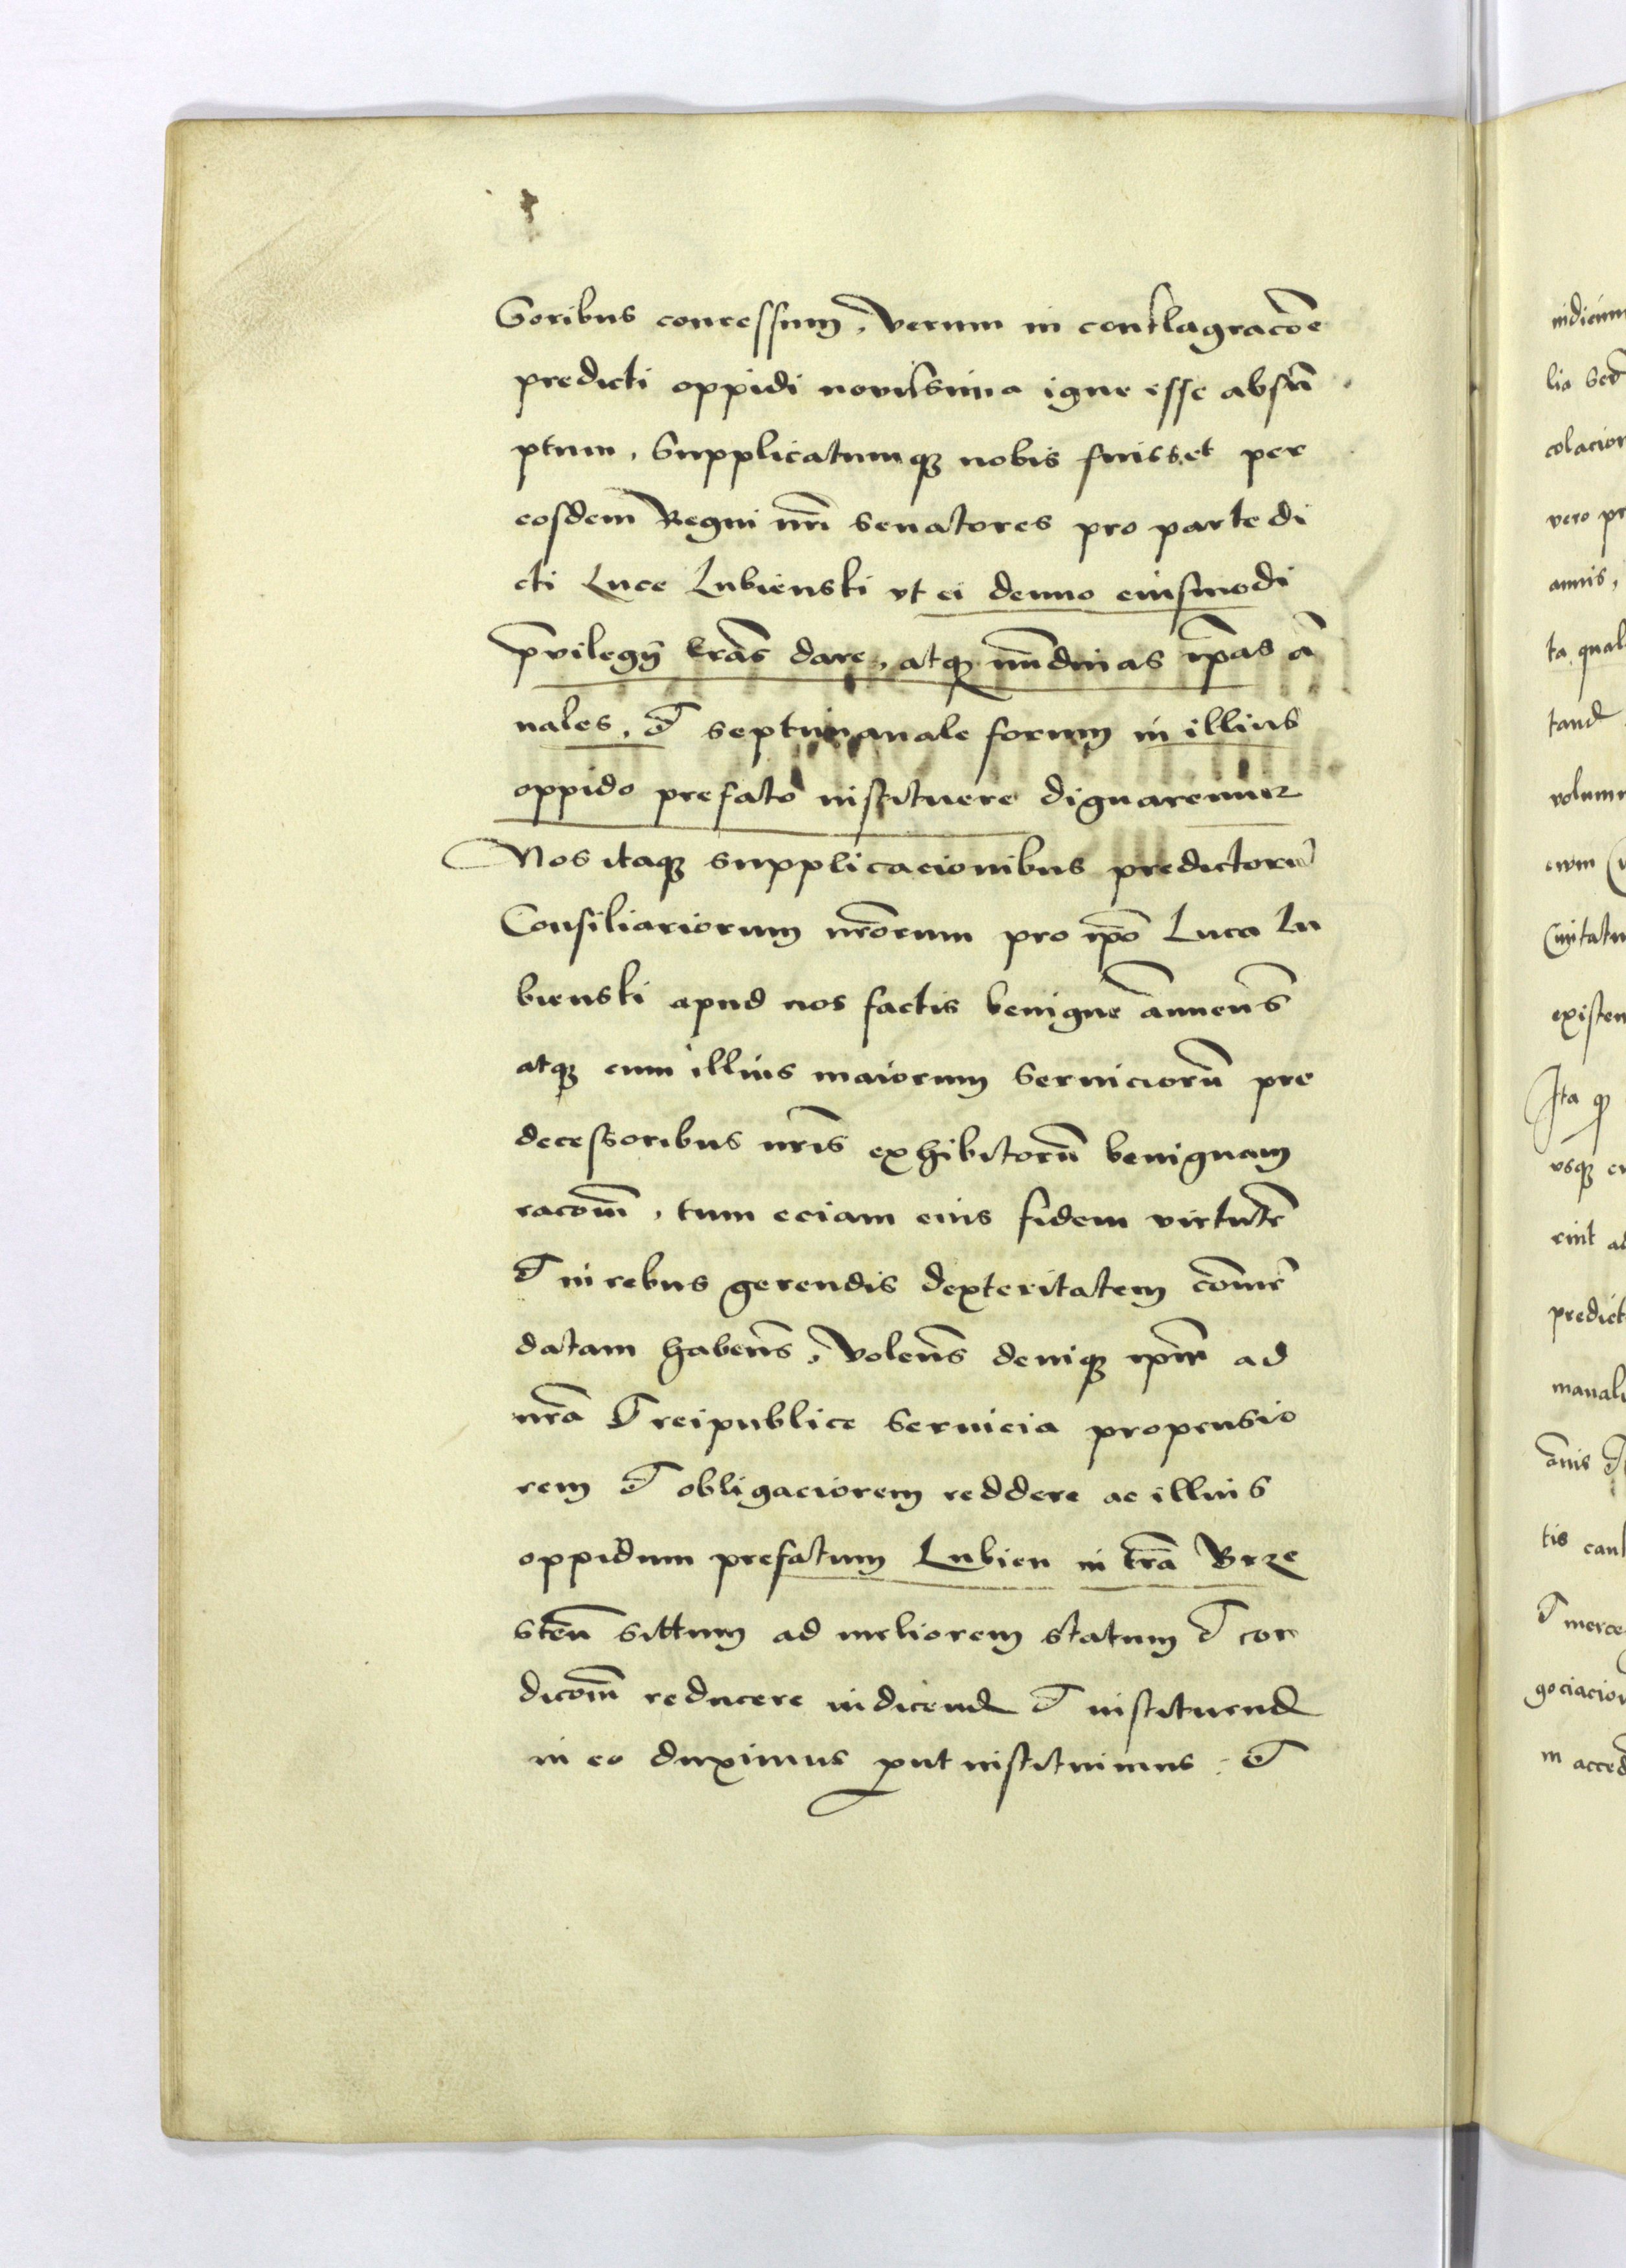 soribus concessum, verum in conflagracōe
predicti oppidi novissima igne esse absū
ptum, Supplicatumqꝫ nobis fuisset per
eosdem Regni nr̄i senatores pro parte di
cti Luce Lubienski vt ei denuo eiusmodi
pr̄vilegÿ lr̄as dare, atqꝫ nūdinas ip̄as ā
nales, et septimanale forum in illius
oppido prefato instituere dignaremur
Nos itaqꝫ supplicacionibus predictorū
Consiliariorum nr̄orum pro ip̄o Luca Lu
bienski apud nos factis benigne ānuen̄s
atqꝫ cum illius maiorum serviciorū pre
decessoribus nr̄is exhibitorū benignam
racōm̄, tum eciam eius fidem virtutē
et in rebus gerendis dexteritatem cōmē
datam haben̄s, volen̄s deniqꝫ ip̄m ad
nr̄a et reipublice servicia propensio
rem et obligaciorem reddere ac illius
oppidum prefatum Lubien in tr̄a Brze
sten̄ sittum ad meliorem statum et con
dicōm̄ reducere indicend et instituend
in eo duximus put instituimus et
nidicium
lia
colacion
vero pr
annis,
ta qual
tand
volum
eum
Civitatu
existen
Ita qꝫ
vsqꝫ
rint ad
predict
manal
ōnis
tis
et merce
gociacion
m acced